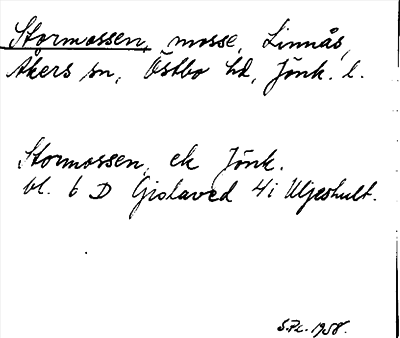 Stormossen, mosse, Linnås,
Åkers sn, Östbo hd, Jönk. l.
Stormossen, ek Jönk.
bl. 6 D Gislaved 4i Uljeshult.
1958.